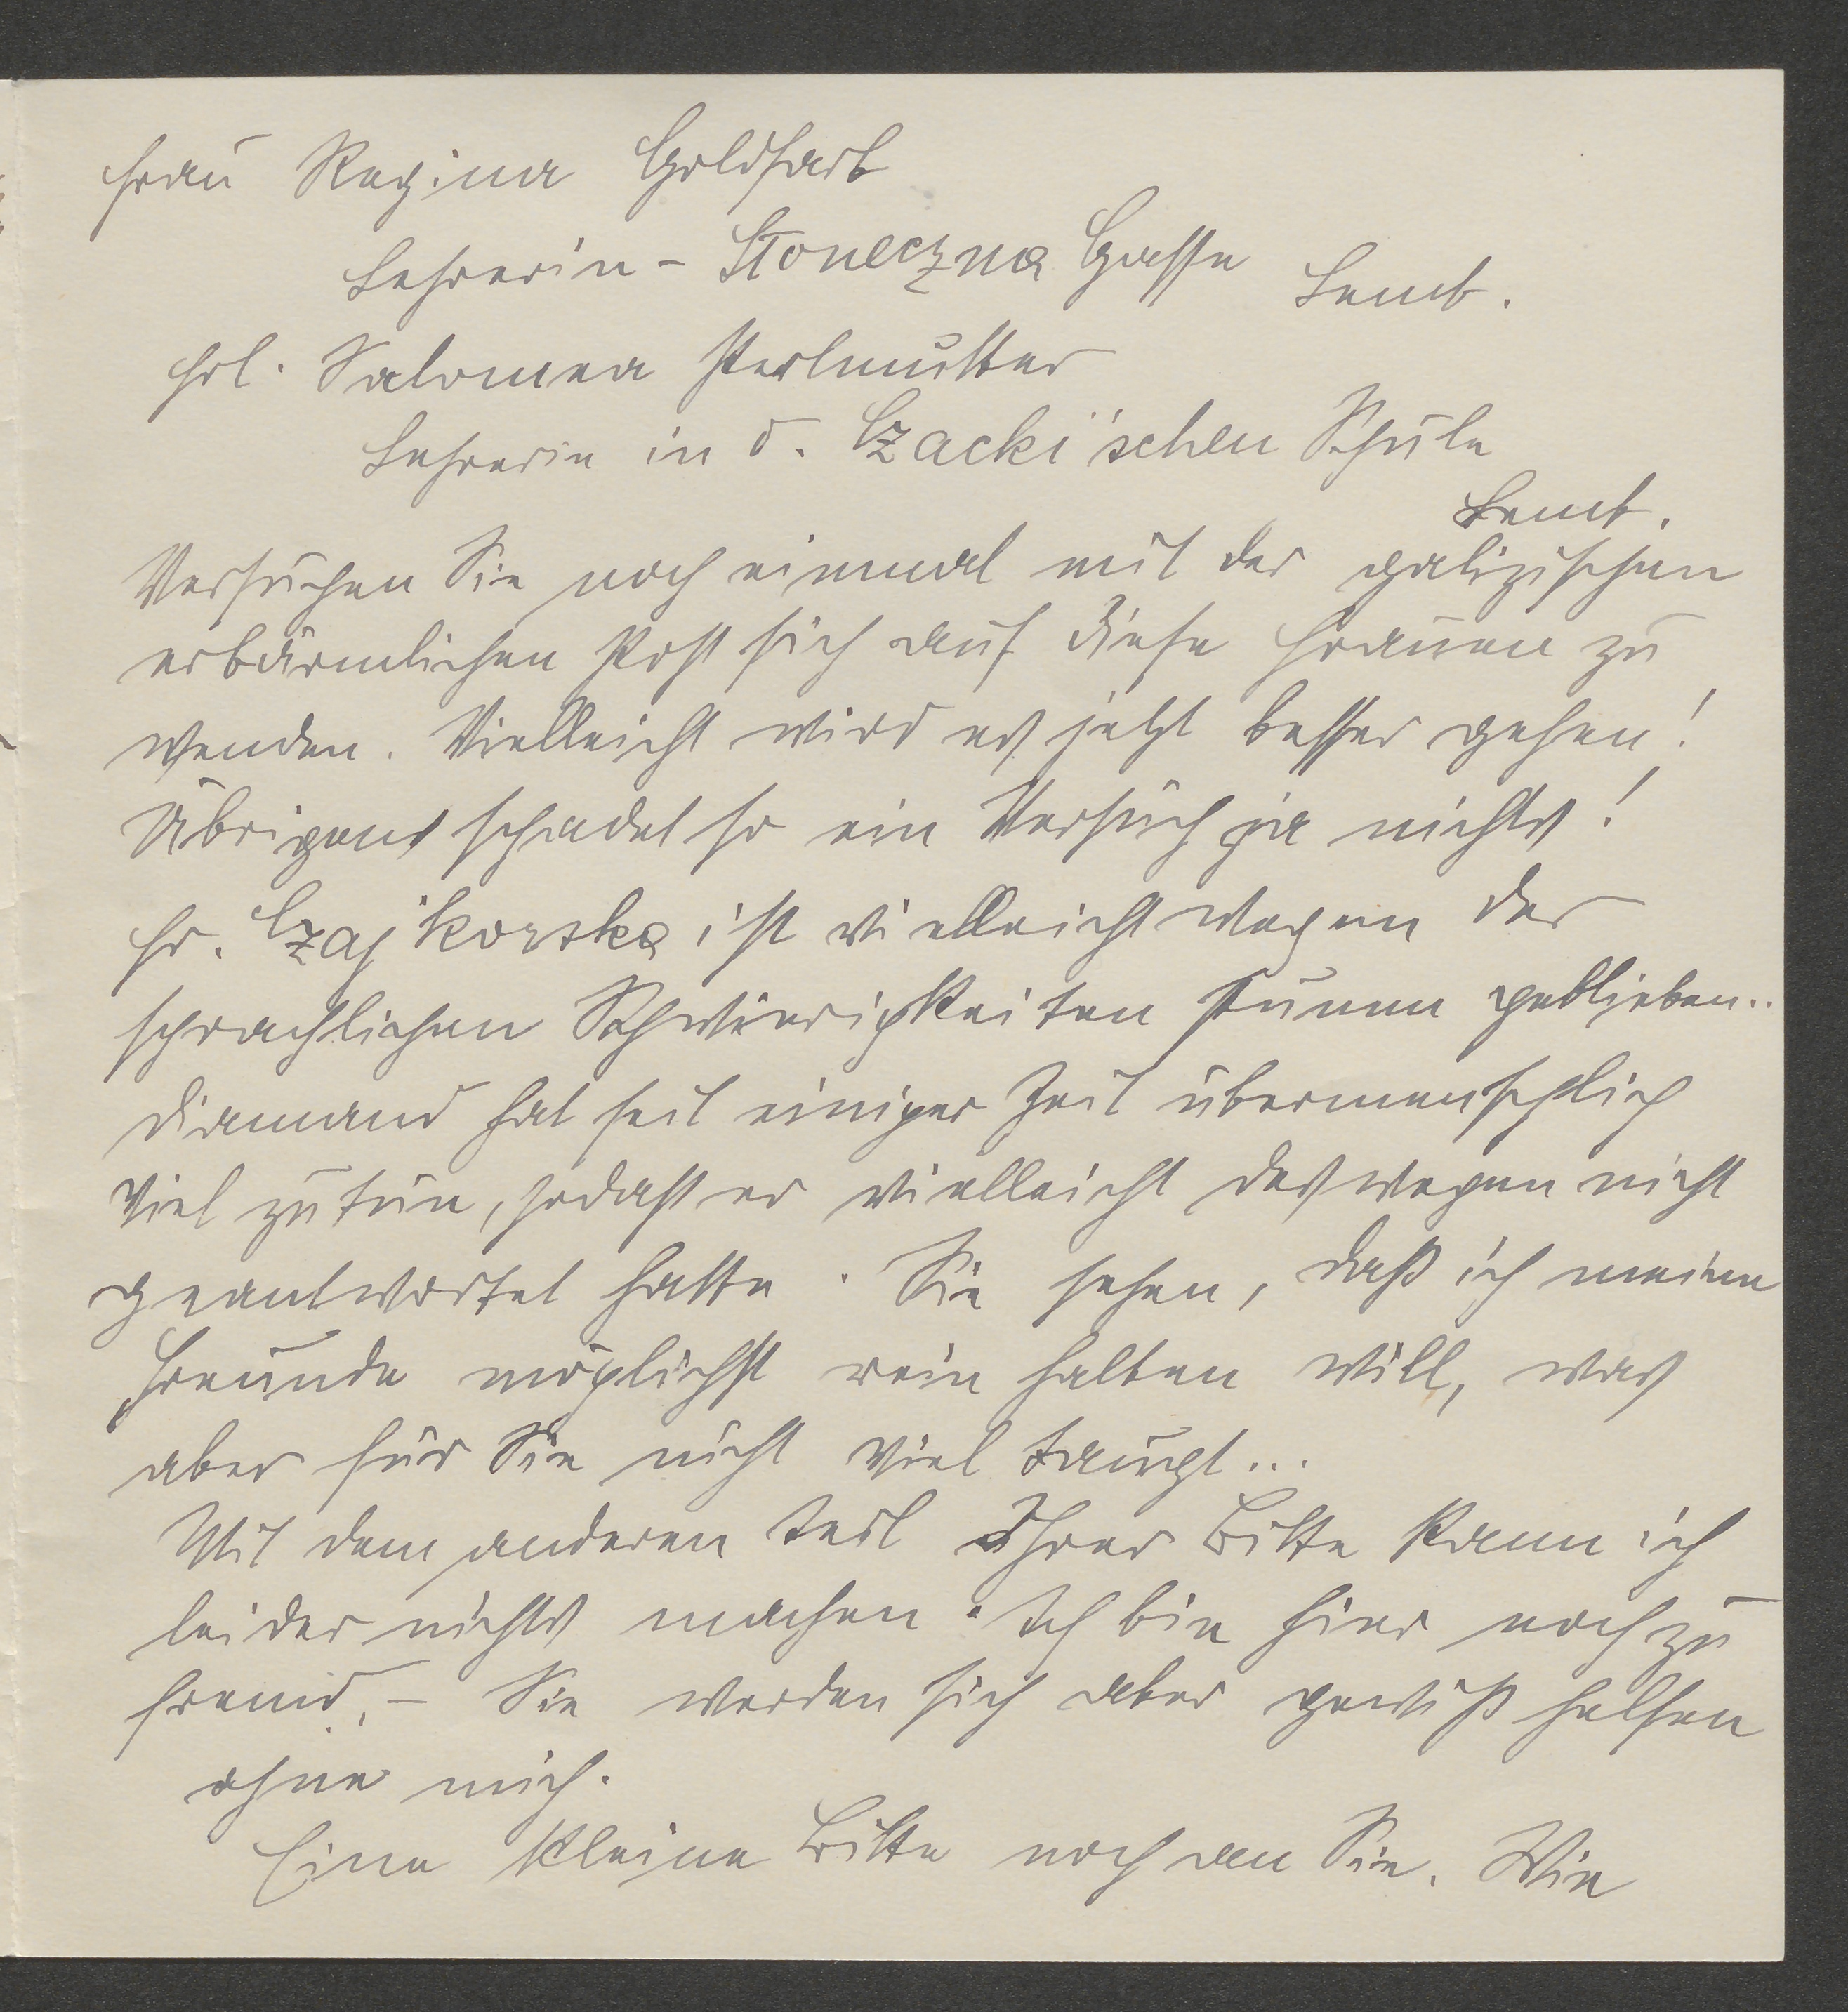 Frau Regina Goldfarb
Lehrerin - Słoneczna Gasse Lemb.
Frl. Salomea Perlmutter
Lehrerin in d. Czacki'schen Schule
Lemb.
Versuchen Sie noch einmal mit der galizischen
erbärmlichen Post sich auf diese Frauen zu
wenden. Vielleicht wird es jetzt besser gehen!
Übrigens schadet so ein Versuch ja nichts!
Fr. Czajkowska ist vielleicht wegen der
sprachlichen Schwierigkeiten stumm geblieben..
Diamand hat seit einiger Zeit übermenschlich
viel zu tun, sodaß er vielleicht deswegen nicht
geantwortet hatte. Sie sehen, daß ich meine
Freunde möglichst rein halten will, was
aber für Sie nicht viel taugt...
Mit dem anderen Teil Ihrer Bitte kann ich
leider nichts machen. Ich bin hier noch zu
fremd, - Sie werden sich aber gewiß helfen
ohne mich.
Eine kleine Bitte noch an Sie. Wie